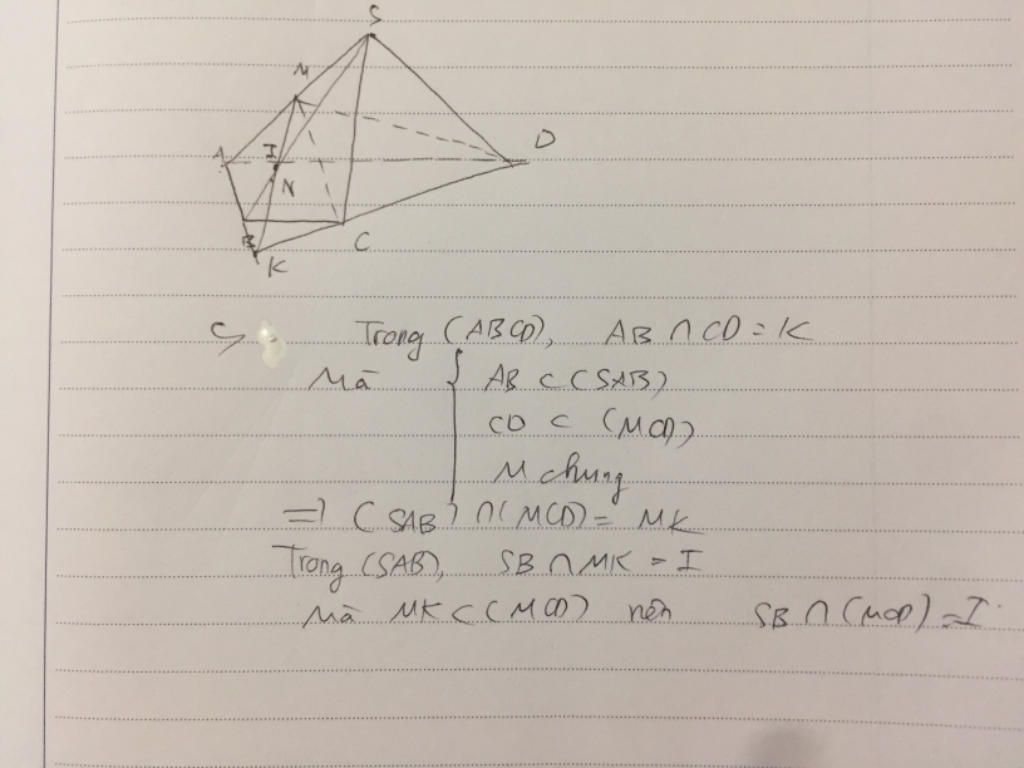 S
M
A
I
D
N
B
C
K
c, Trong (ABCD), AB ∩ CD = K
Mà { AB ⊂ (SAB)
CD ⊂ (MCD)
M chung
=> (SAB) ∩ (MCD) = MK
Trong (SAB), SB ∩ MK = I
Mà MK ⊂ (MCD) nên SB ∩ (MCD) = I